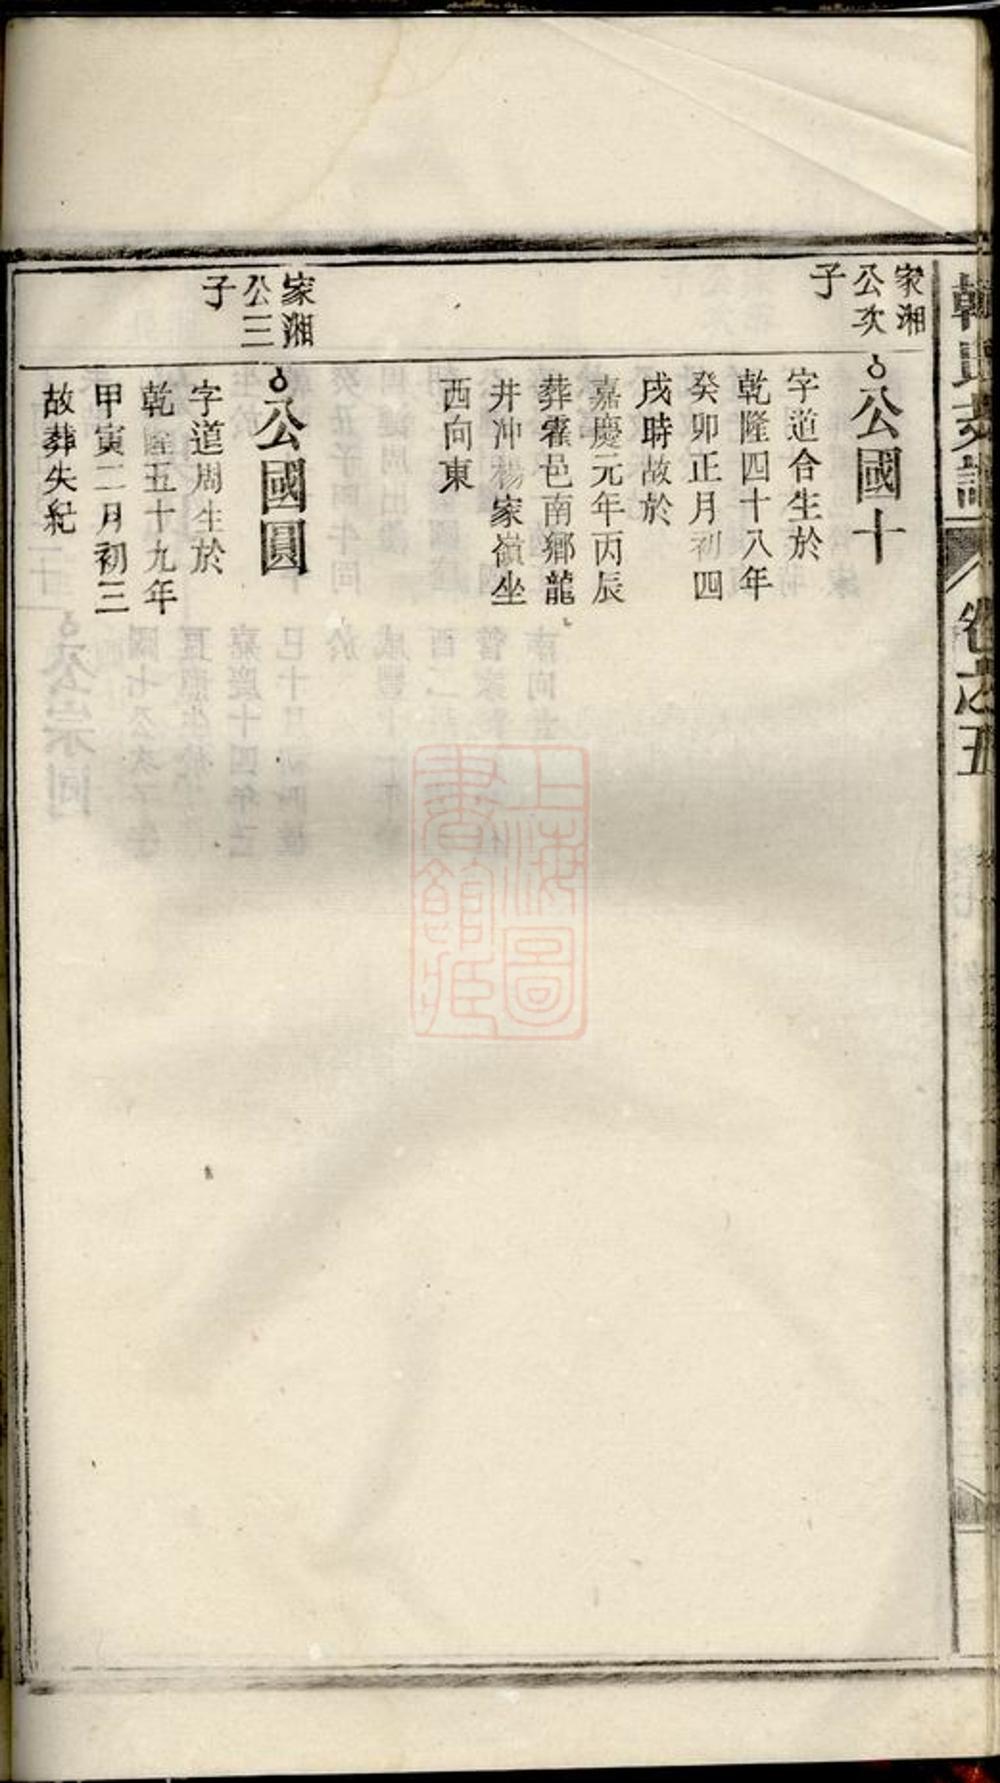 家湘
公次
子
公國十
字道合生於
乾隆四十八年
癸卯正月初四
戌時故於
嘉慶元年丙辰
葬霍邑南鄉龍
井冲楊家嶺坐
西向東
家湘
公三
子
公國圓
字道周生於
乾隆五十九年
甲寅二月初三
故葬失紀
卷之五
上海圖
書館藏